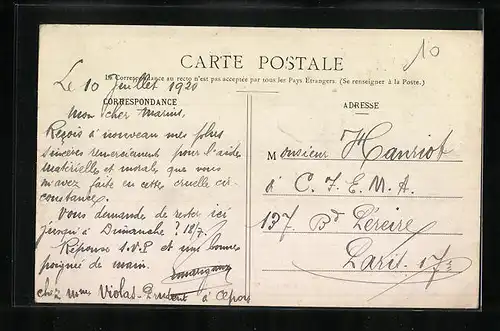 10
CARTE POSTALE
La Correspondance au recto n'est pas acceptée par tous les Pays Etrangers. (Se renseigner à la Poste.)
Le 10 Juillet 1920
CORRESPONDANCE
ADRESSE
Mon cher Marius,
Reçois à nouveau mes plus
sincères remerciements pour l'aide
matérielles et morales que vous
m'avez faite en cette cruelle cir-
constance.
Vous demande de rester ici
jusqu'à Dimanche ? 18/7.
Réponse S.V.P et une bonne
poignée de main.
chez Mme Violas-
Monsieur Hanriot
à C. I. E. M. A.
137. Bd Péreire
Paris. 17e